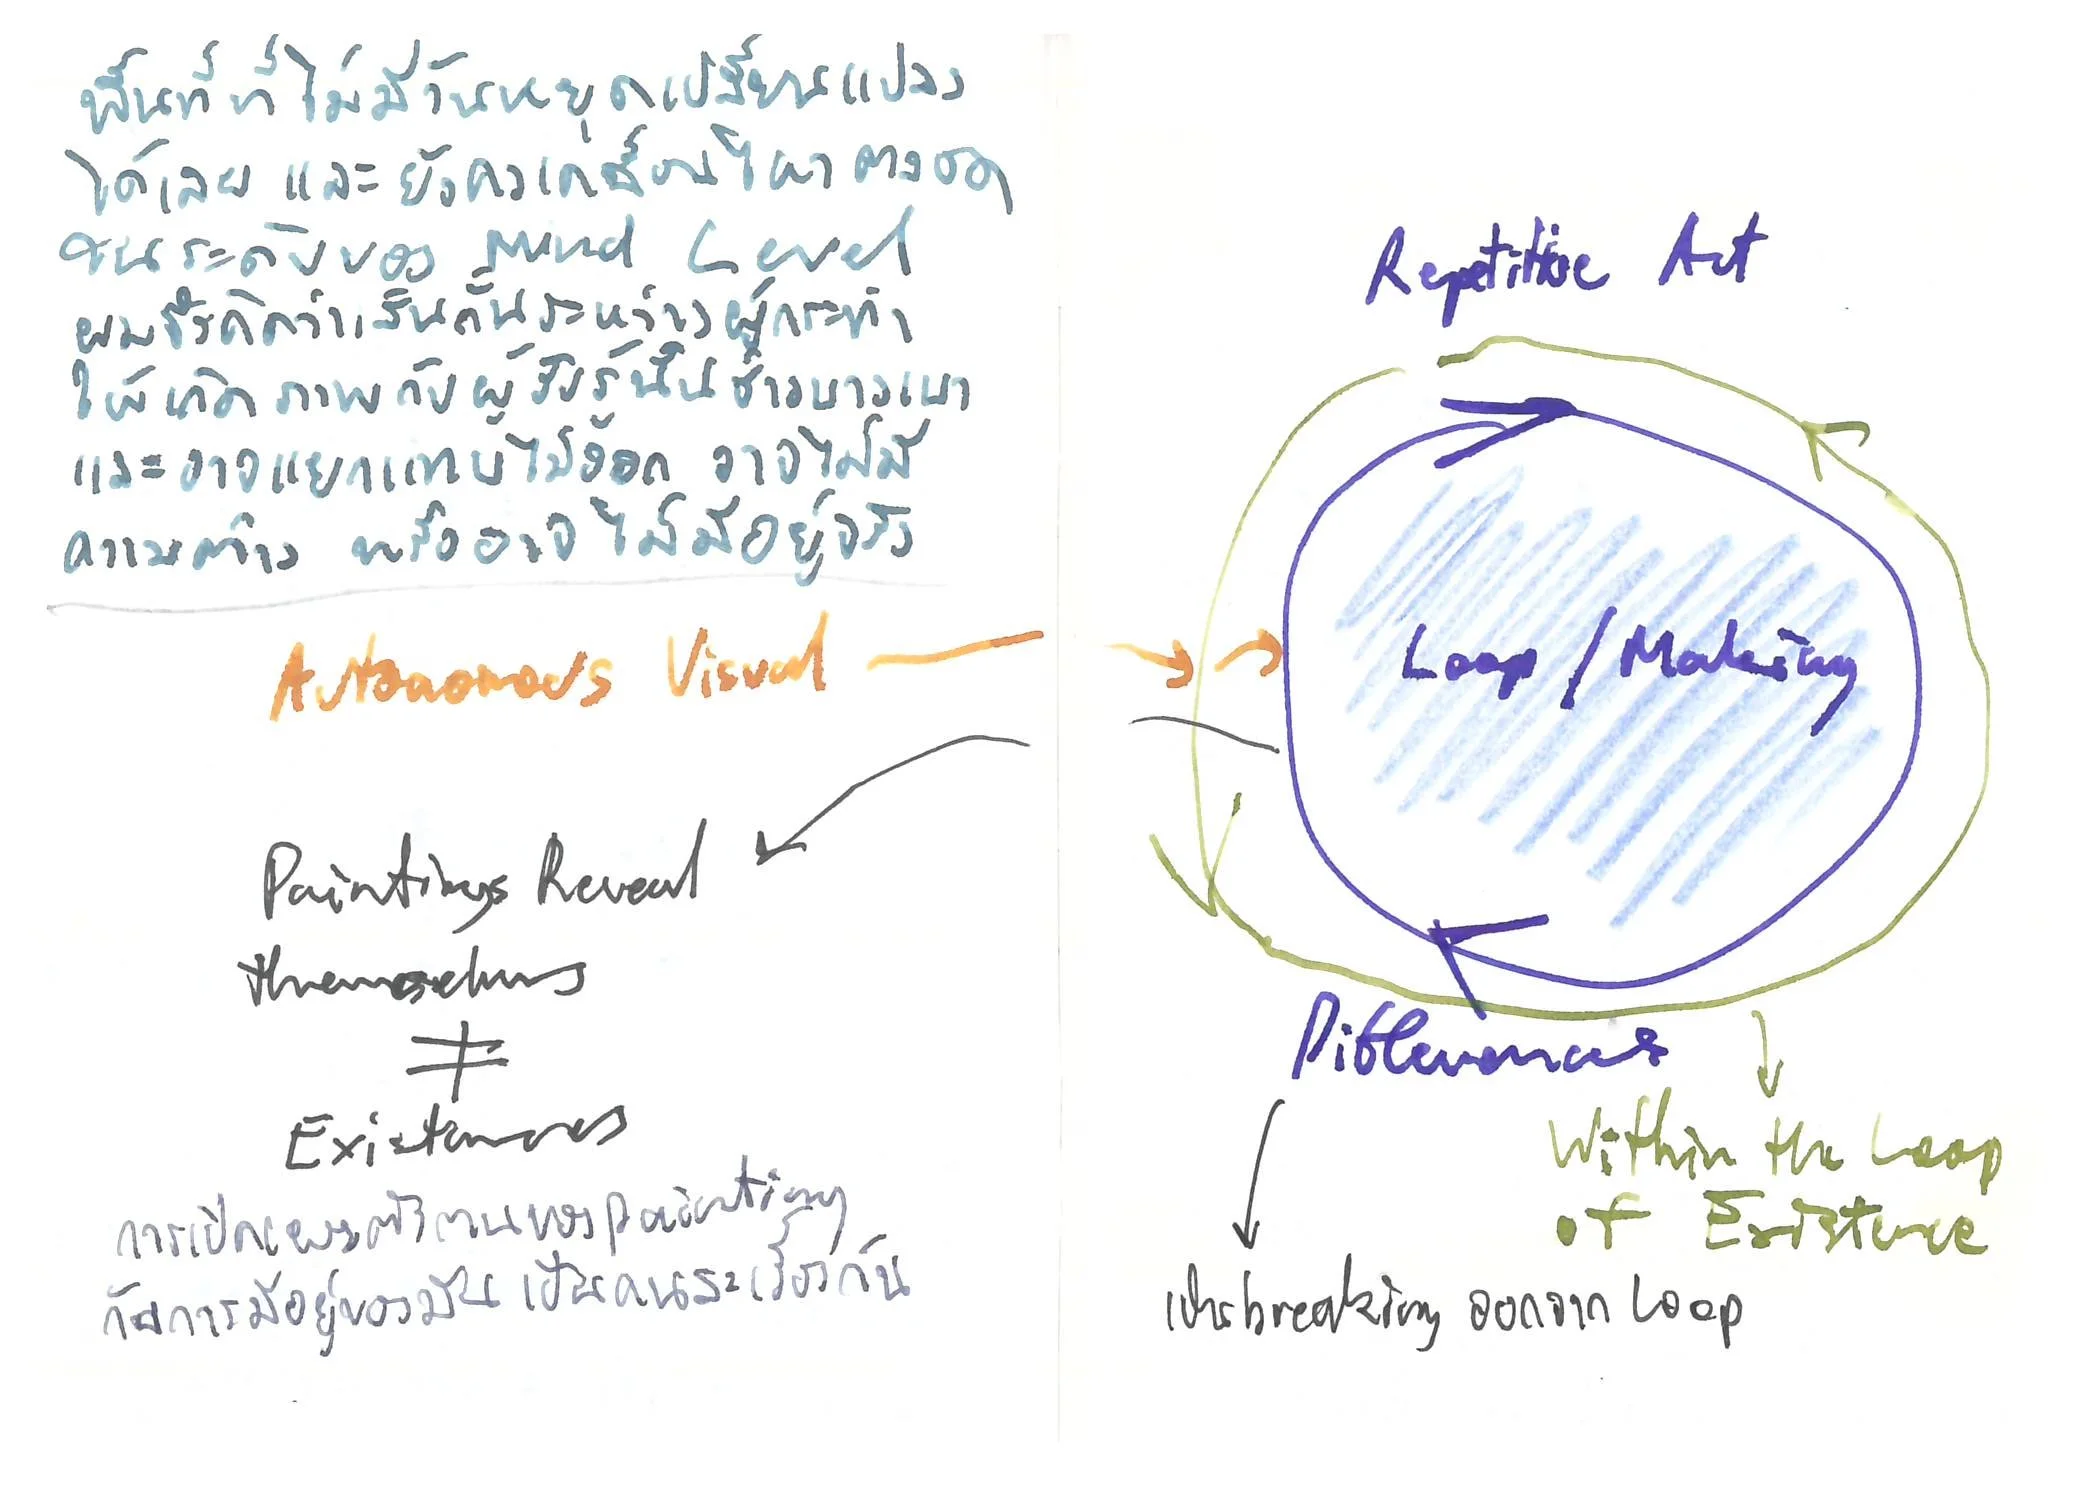 พื้นที่ที่ไม่มีวันหยุดเปลี่ยนแปลง
ได้เลย และยังคงเคลื่อนไหวตลอด
ในระดับของ Mind Level
ผมจึงคิดว่าเส้นคั่นระหว่างผู้กระทำ
ให้เกิดภาพกับผู้รับรู้นั้นช่างบางเบา
และอาจแยกแทบไม่ออก อาจไม่มี
ความต่าง หรืออาจไม่มีอยู่จริง
Autonomous Visual
Paintings Reveal
themselves
≠
Existences
การเปิดเผยตัวตนของ painting
กับการมีอยู่ของมัน เป็นคนละเรื่องกัน
Repetitive Act
Loop / Making
Differences
Within the Loop
of Existence
เป็น breaking ออกจาก Loop